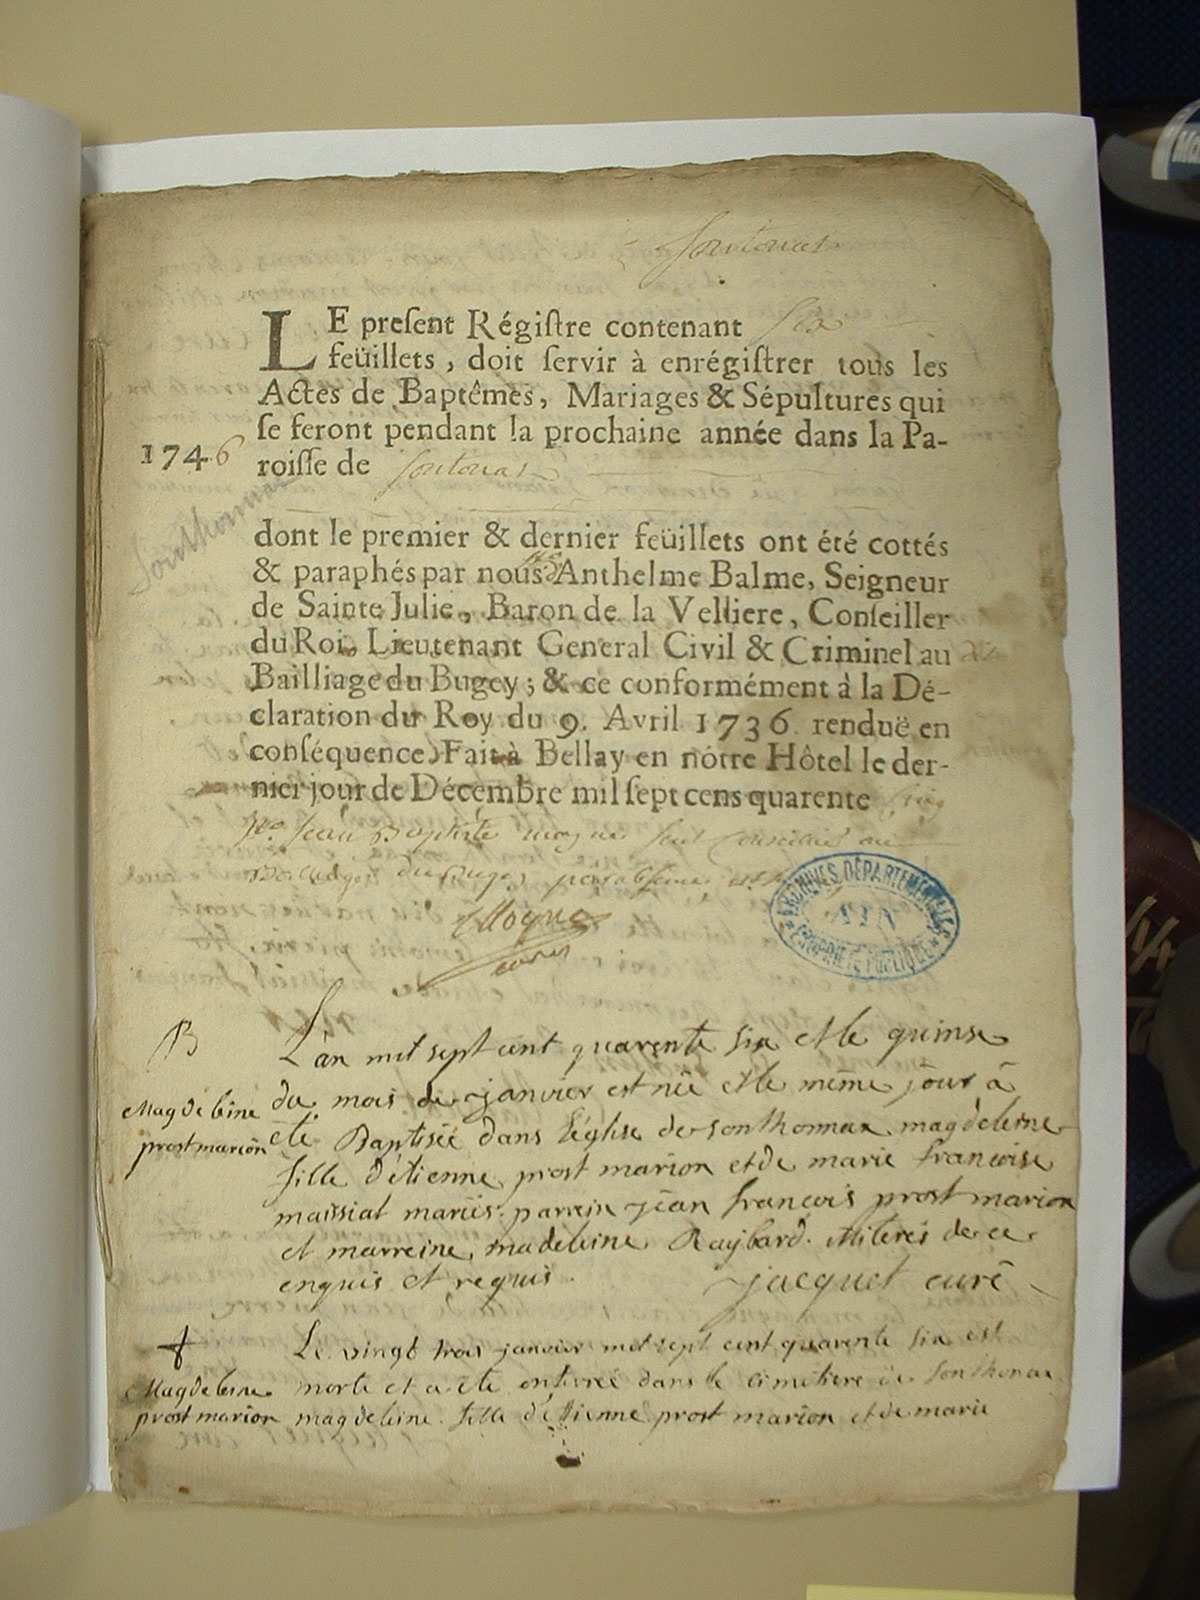 Sontonas
LE present Régistre contenant six
feüillets, doit servir à enrégistrer tous les
Actes de Baptêmes, Mariages & Sépultures qui
se feront pendant la prochaine année dans la Pa-
1746
roisse de Sontonas
Sonthonnax
dont le premier & dernier feüillets ont été cottés
& paraphés par nous Anthelme Balme, Seigneur
de Sainte Julie, Baron de la Velliere, Conseiller
du Roi, Lieutenant General Civil & Criminel au
Bailliage du Bugey; & ce conformément à la Dé-
claration du Roy du 9. Avril 1736. renduë en
conséquence. Fait à Bellay en nôtre Hôtel le der-
nier jour de Décembre mil sept cens quarente cinq
Jean Baptiste Conseiller au
Bailliage du Bugey
ARCHIVES DÉPARTEMENTALES
AIN
PROPRIÉTÉ PUBLIQUE
B
L'an mil sept cent quarente six et le quinse
Magdeleine
prost marion
du mois de janvier est née et le même jour à
eté Baptisée dans l'église de sonthonnax magdeleine
fille d'étienne prost marion et de marie francoise
maissiat mariés parrein jean francois prost marion
et marreine madeleine Raybard. illiterés de ce
enquis et requis. jacquet curé
Le vingt trois janvier mil sept cent quarente six est
Magdeleine
prost marion
morte et a ete enterrée dans le cimetiere de Sonthonax
magdeleine fille d'étienne prost marion et de marie